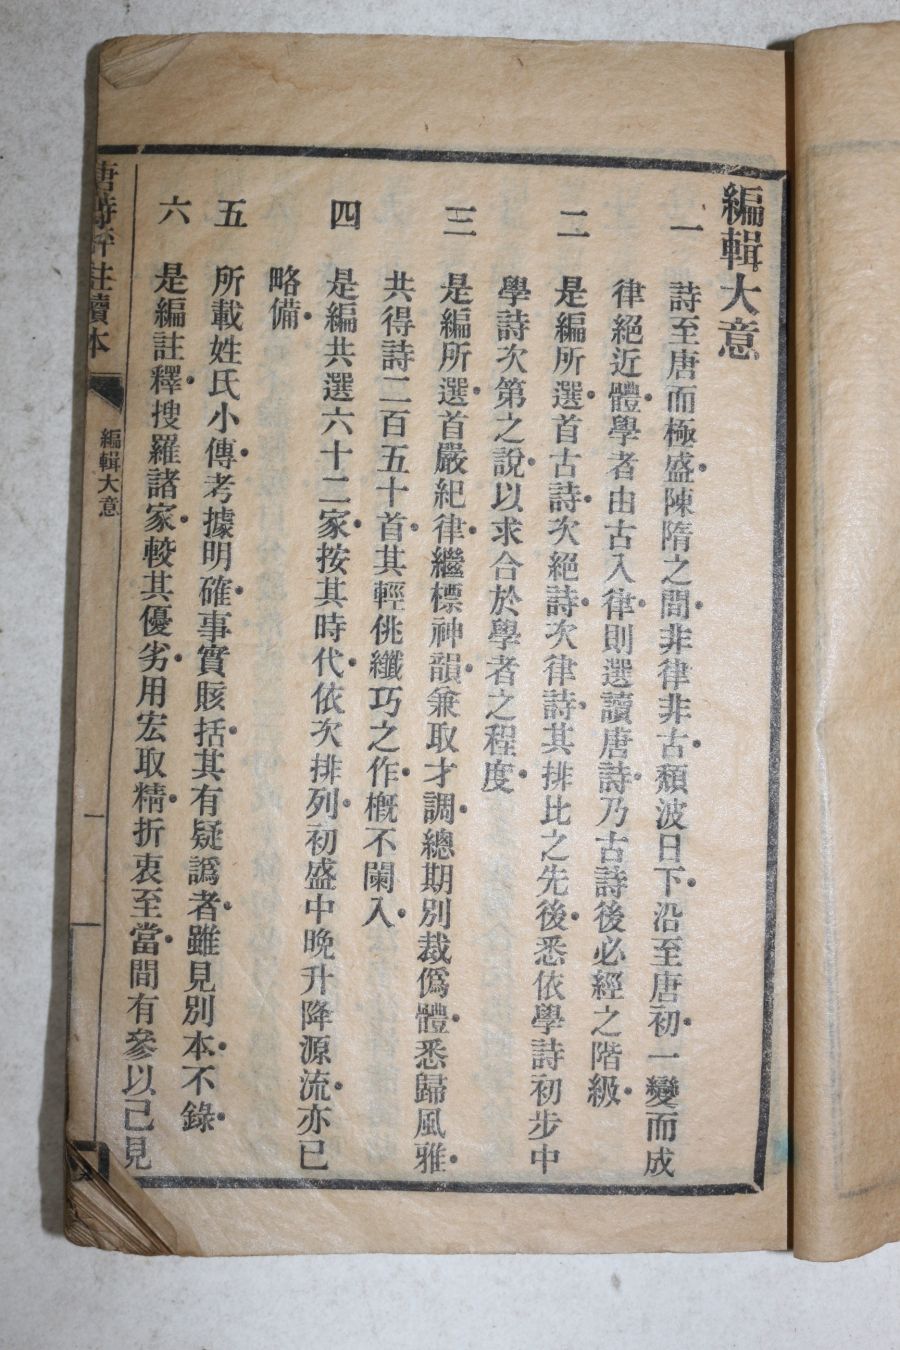 編輯大意
一 詩至唐而極盛。陳隋之間。非律非古。頹波日下。沿至唐初。一變而成
律絕近體。學者由古入律。則選讀唐詩。乃古詩後必經之階級。
二 是編所選。首古詩。次絕詩。次律詩。其排比之先後。悉依學詩初步中
學詩次第之說。以求合於學者之程度。
三 是編所選。首嚴紀律。繼標神韻。兼取才調。總期別裁僞體。悉歸風雅。
共得詩二百五十首。其輕佻纖巧之作。槪不闌入。
四 是編共選六十二家。按其時代。依次排列。初盛中晚。升降源流。亦已
略備。
五 所載姓氏小傳。考據明確。事實賅括。其有疑譌者。雖見別本。不錄。
六 是編註釋。搜羅諸家。較其優劣。用宏取精。折衷至當。間有參以已見
唐詩評註讀本
編輯大意
一